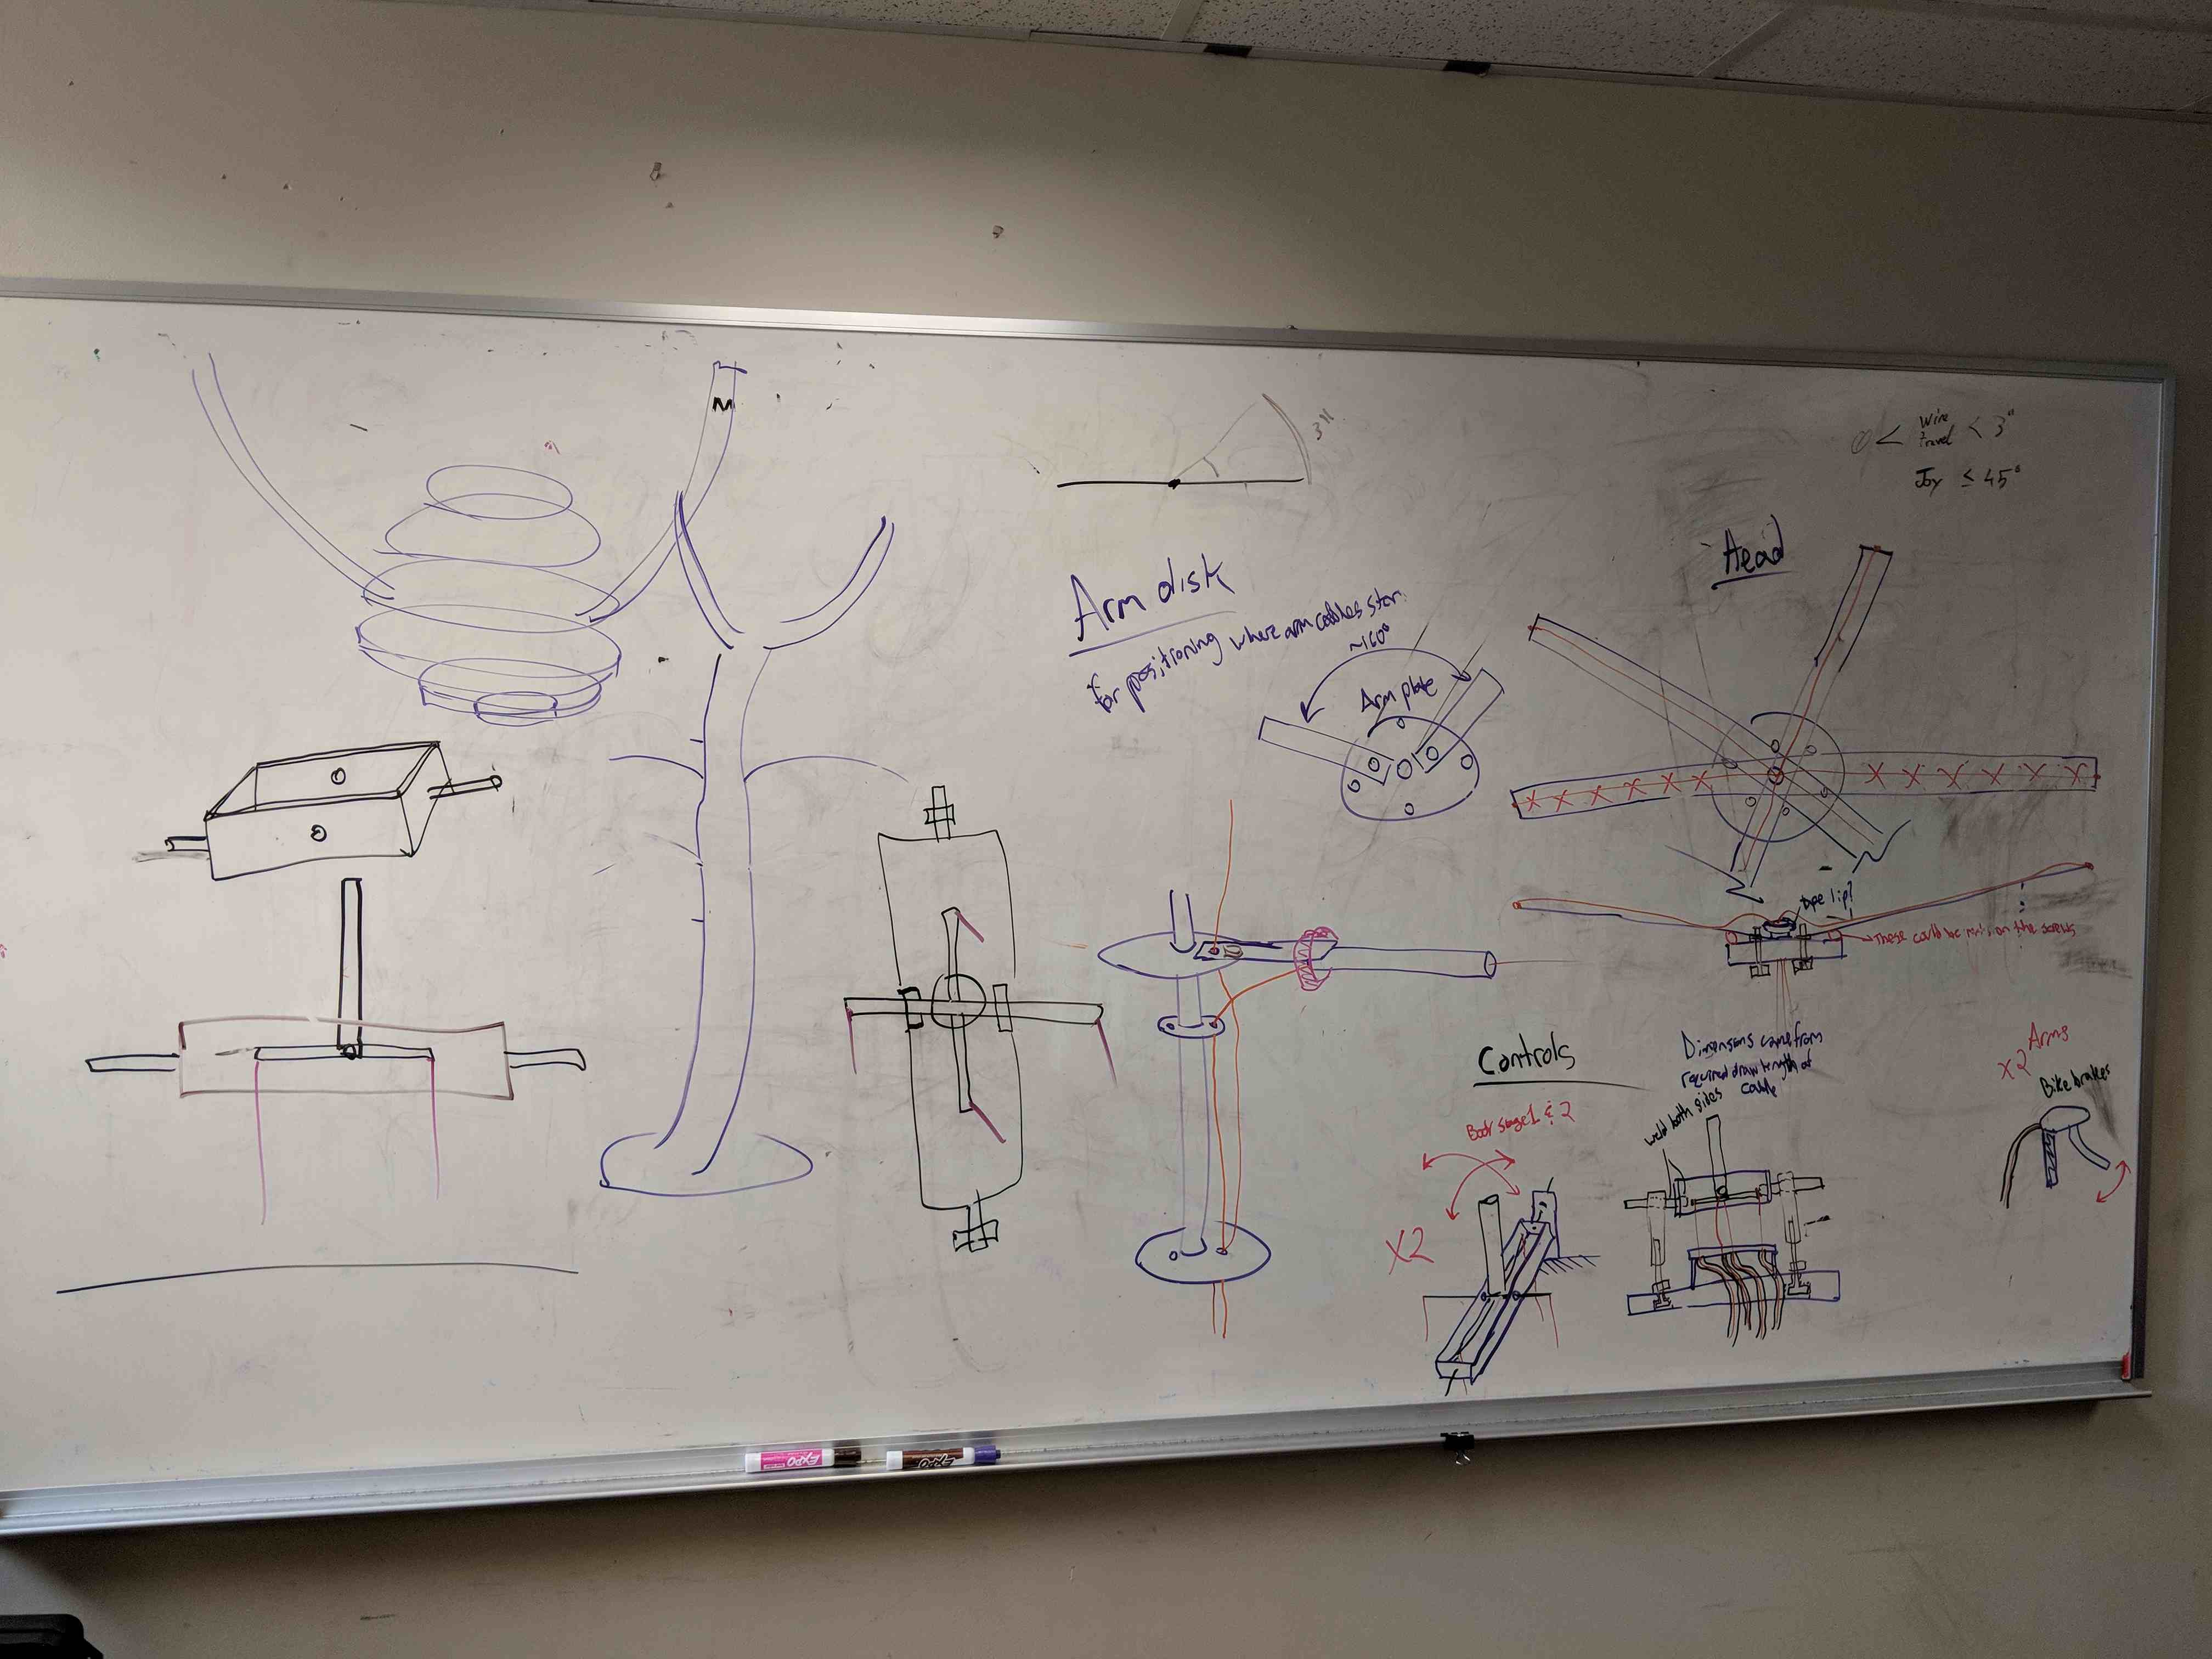 M
3"
0 < Wire
travel < 3"
Joy ≤ 45°
Arm disk
for positioning where arm cables star
~160°
Arm plate
Head
tape lip?
These could be on the screws
Controls
Body stage 1 & 2
X2
Dimensions came from
required draw length of
cable
weld both sides
Arms
X2
Bike brakes
EXPO
EXPO